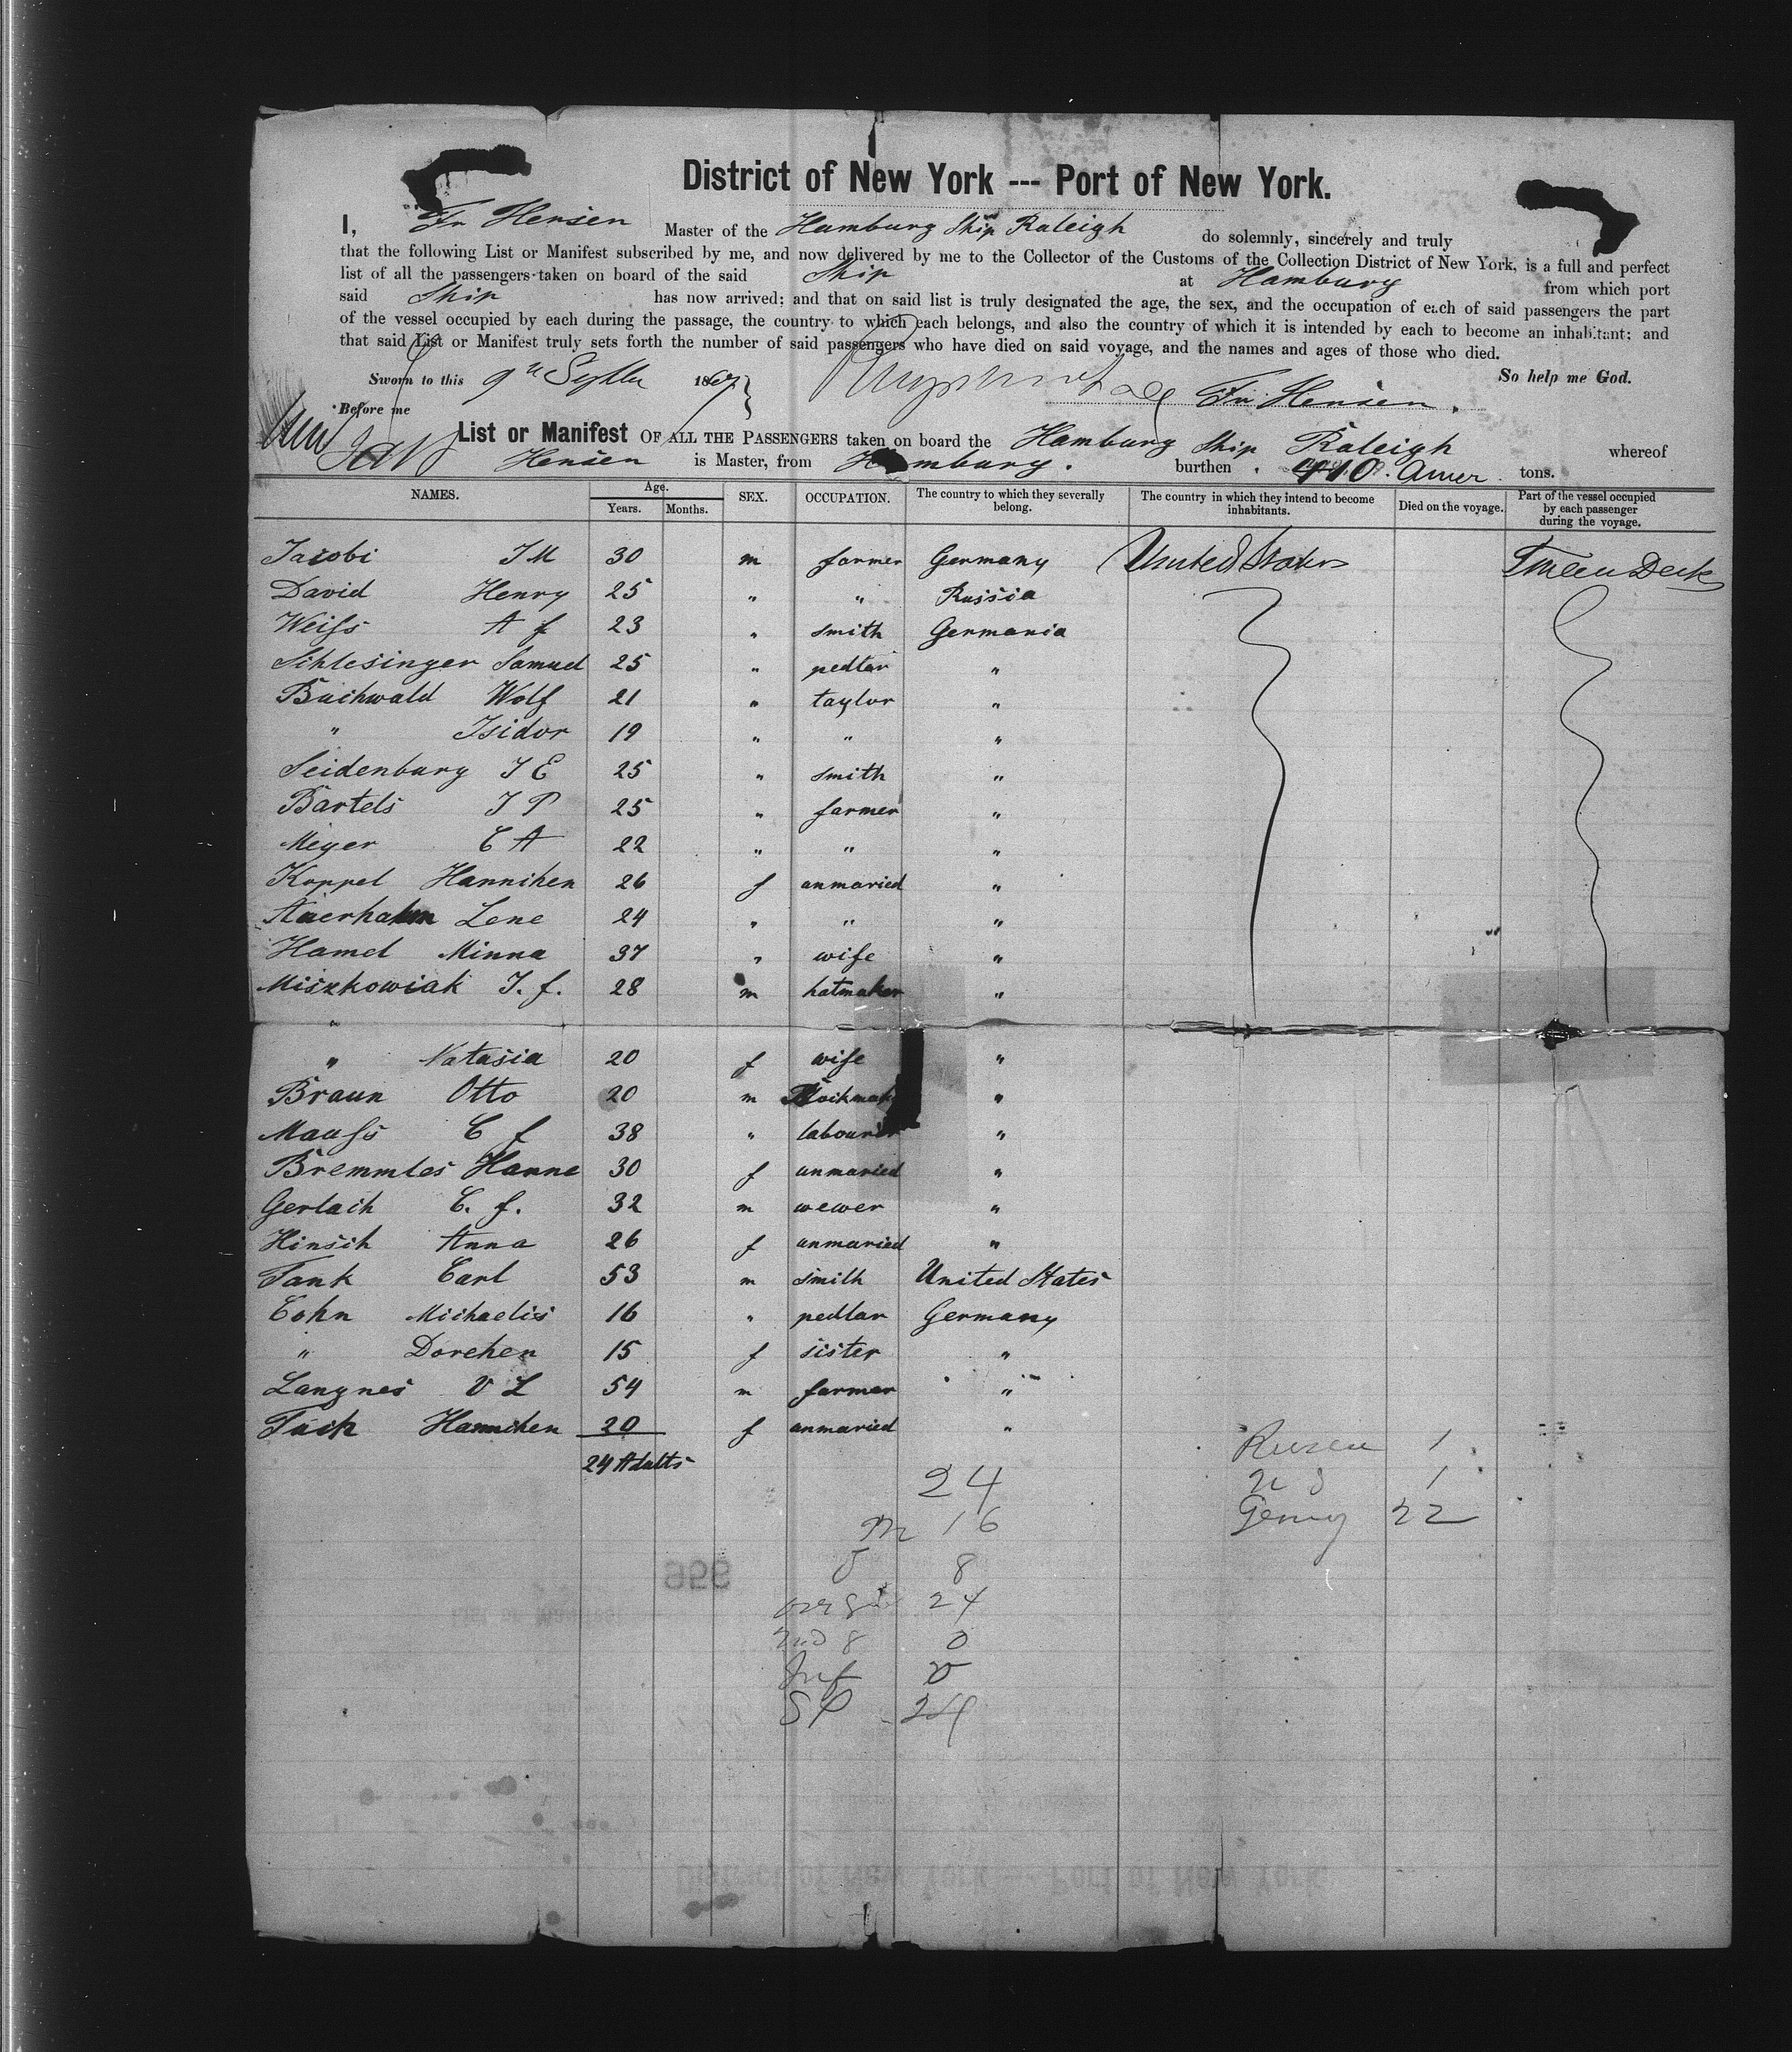 District of New York --- Port of New York.
I, Fr Hensen Master of the Hamburg Ship Raleigh do solemnly, sincerely and truly
that the following List or Manifest subscribed by me, and now delivered by me to the Collector of the Customs of the Collection District of New York, is a full and perfect
list of all the passengers taken on board of the said Ship at Hamburg from which port
said Ship has now arrived; and that on said list is truly designated the age, the sex, and the occupation of each of said passengers the part
of the vessel occupied by each during the passage, the country to which each belongs, and also the country of which it is intended by each to become an inhabitant; and
that said List or Manifest truly sets forth the number of said passengers who have died on said voyage, and the names and ages of those who died.
Sworn to this 9 186 So help me God.
Before me Fr. Hensen.
List or Manifest OF ALL THE PASSENGERS taken on board the Hamburg Ship Raleigh whereof
Hensen is Master, from Hamburg. burthen 410 Amer. tons.
NAMES. Age. Years. Months. SEX. OCCUPATION. The country to which they severally belong. The country in which they intend to become inhabitants. Died on the voyage. Part of the vessel occupied by each passenger during the voyage.
Jacobi J M 30 m farmer Germany United States Tween Deck
David Henry 25 " " Russia
Weiss A f 23 " smith Germania
Schlesinger Samuel 25 " pedlar "
Buchwald Wolf 21 " taylor "
" Isidor 19 " " "
Seidenburg J E 25 " smith "
Bartels J P 25 " farmer "
Meyer C A 22 " " "
Koppel Hannchen 26 f unmaried "
Auerhahn Lene 24 " " "
Hamel Minna 37 " wife "
Miszkowiak J. f. 28 m hatmaker "
" Natasia 20 f wife "
Braun Otto 20 m "
Mauss C f 38 " labourer "
Bremmles Hanne 30 f unmaried "
Gerlach C. f. 32 m wewer "
Hinsch Anna 26 f unmaried "
Tank Carl 53 m smith United States
Cohn Michaelis 16 " pedlar Germany
" Dorchen 15 f sister "
Langnes V L 54 m farmer "
Tuch Hannchen 20 f unmaried "
24 Adults
24 1
M 16 1
8 Germy 22
24
und 8 0
Inf 0
24